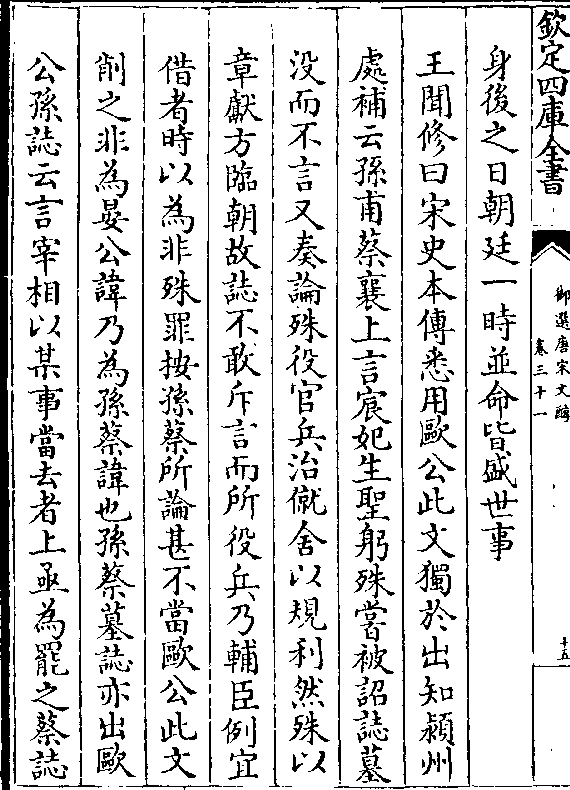 欽定四庫全書
御選唐宋文醇
卷三十一
十五
身後之日朝廷一時並命皆盛世事
王聞修曰宋史本傳悉用歐公此文獨於出知潁州
處補云孫甫蔡襄上言宸妃生聖躬殊嘗被詔誌墓
没而不言又奏論殊役官兵治僦舍以規利然殊以
章獻方臨朝故誌不敢斥言而所役兵乃輔臣例宜
借者時以為非殊罪按孫蔡所論甚不當歐公此文
削之非為晏公諱乃為孫蔡諱也孫蔡墓誌亦出歐
公孫誌云言宰相以某事當去者上亟為罷之蔡誌